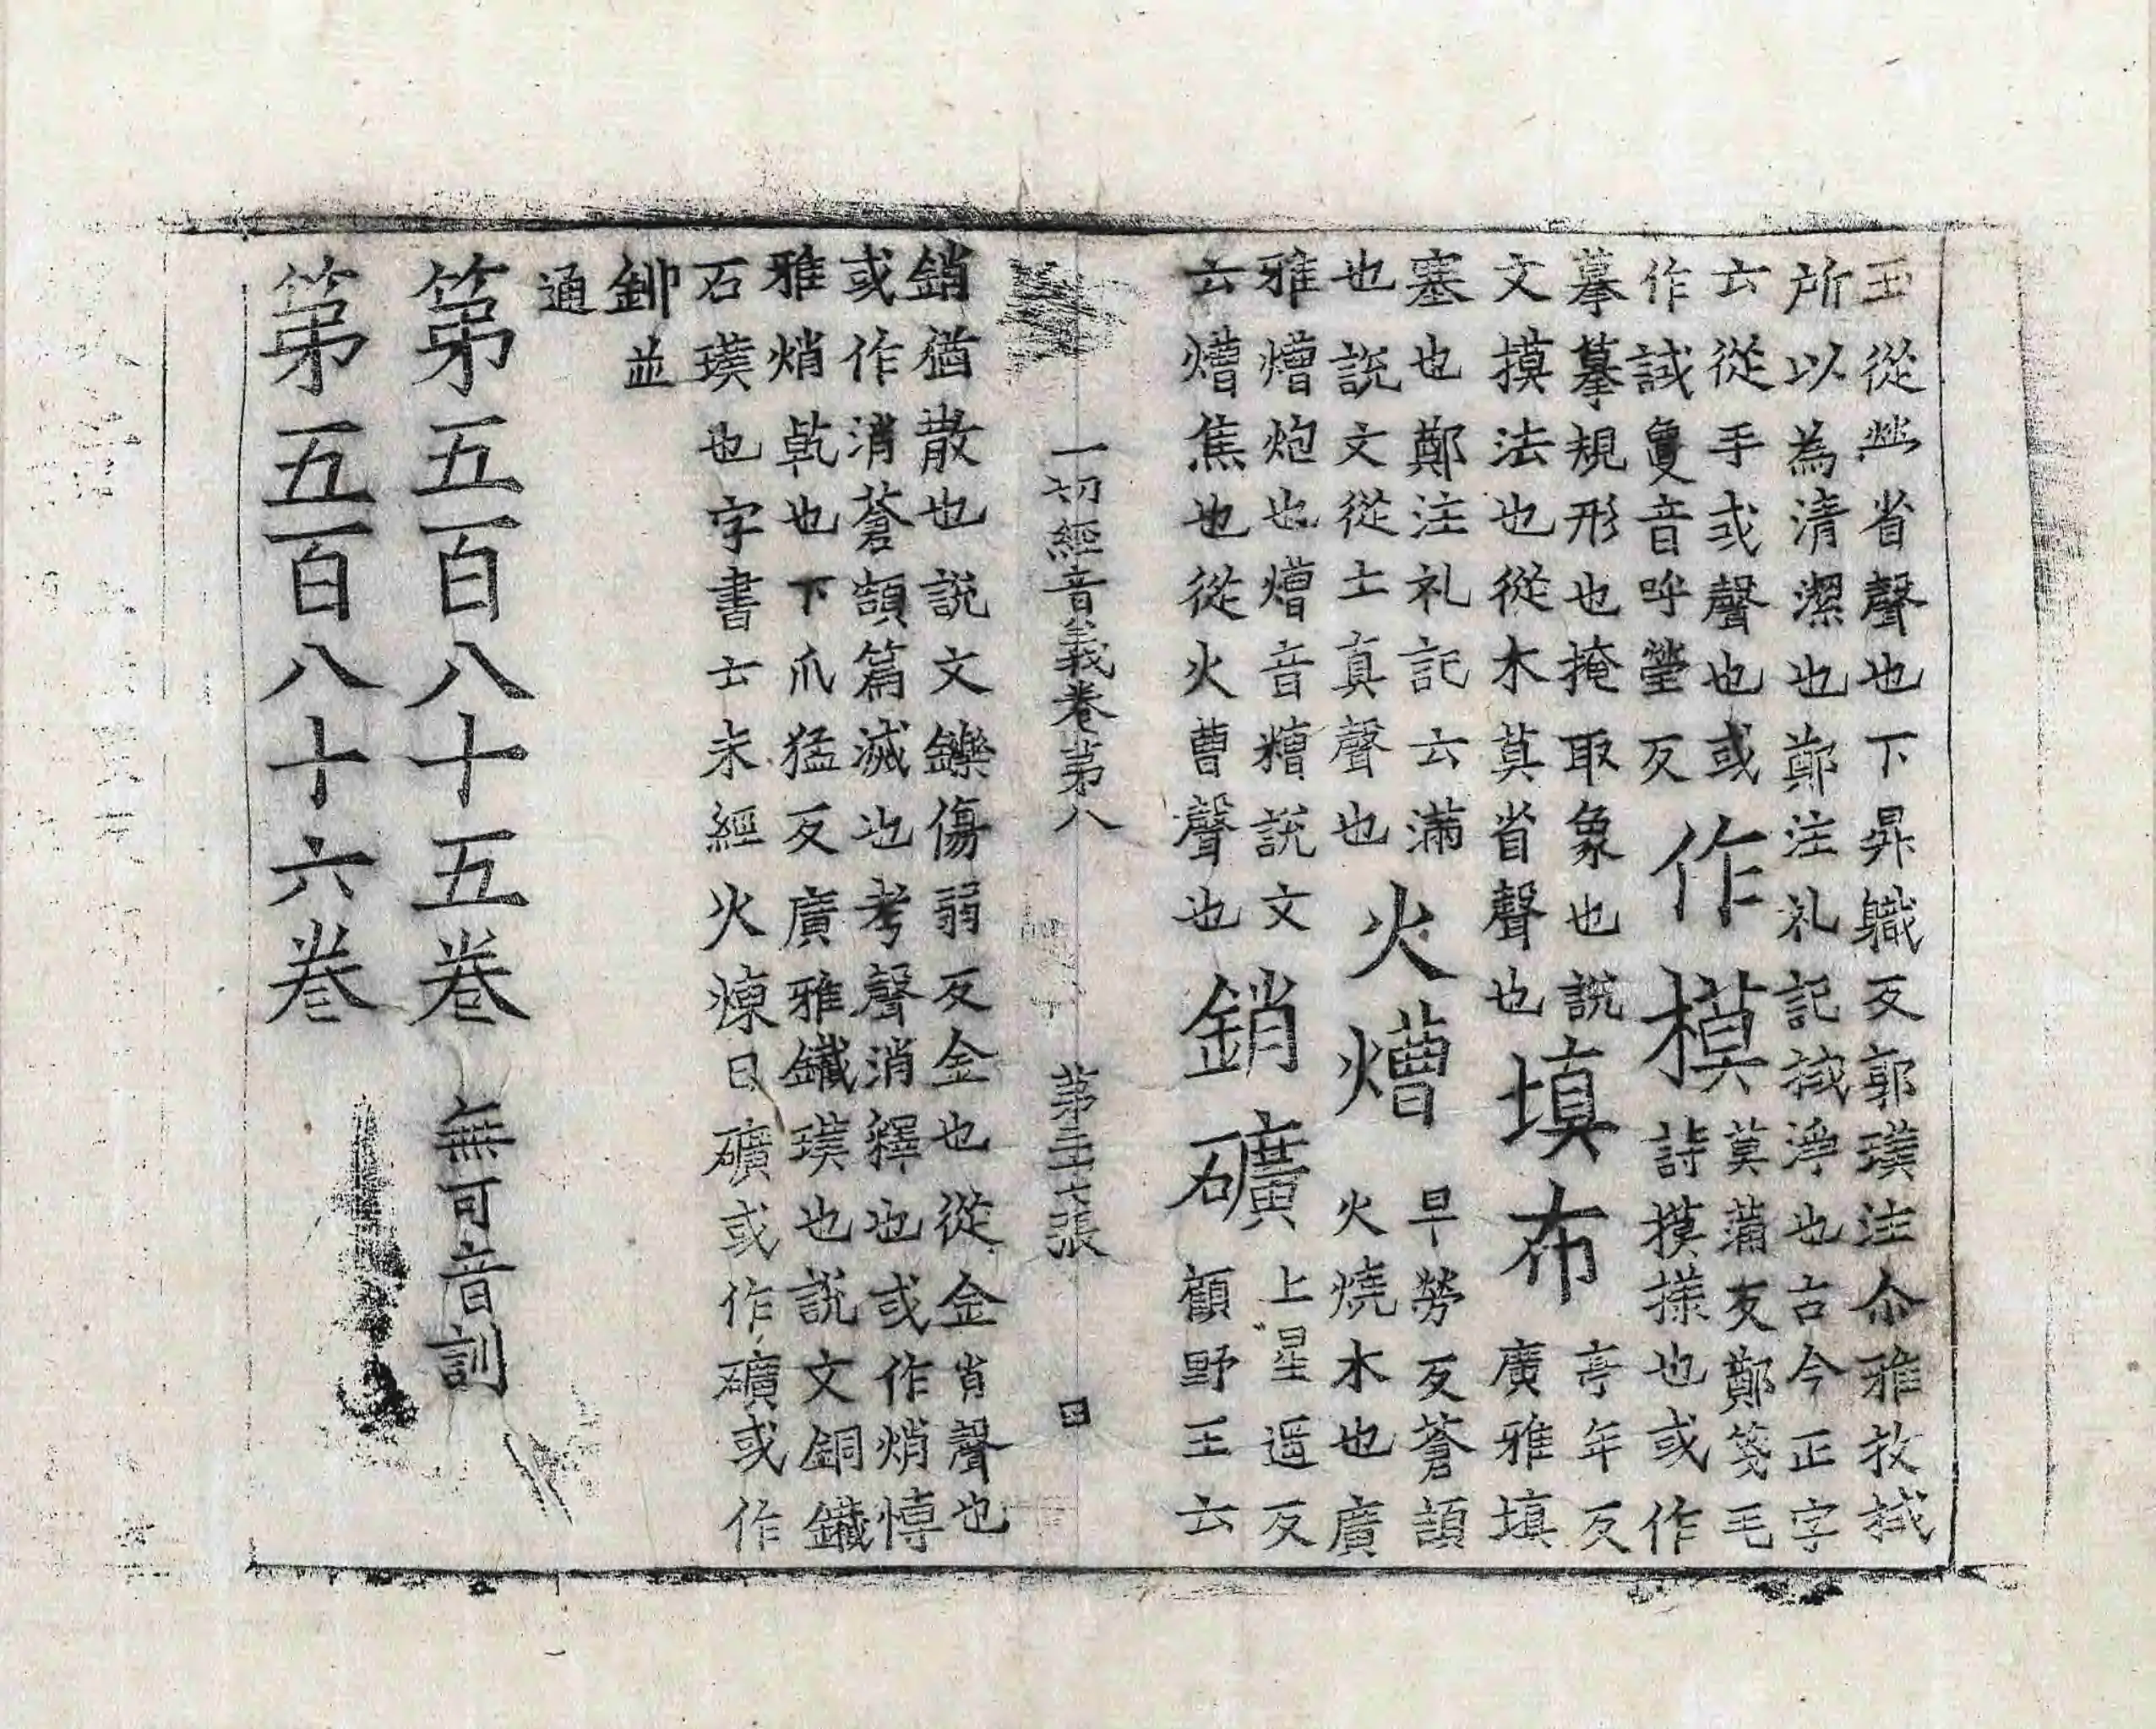 玉從𤇾省聲也下昇職反郭璞注尒雅抆拭
所以為清潔也鄭注礼記拭淨也古今正字
云從手或聲也或
作試夐音呼瑩反
作模
莫蒲反鄭箋毛
詩摸㨾也或作
摹摹規形也掩取象也說
文摸法也從木莫省聲也
填布
亭年反
廣雅填
塞也鄭注礼記云滿
也說文從土真聲也
火𤏶
早勞反蒼頡
火燒木也廣
雅𤏶炮也𤏶音糟說文
云𤏶焦也從火曹聲也
銷礦
上星遥反
顧野王云
一切經音義卷第八
第三十七張
銷猶散也說文鑠傷弱反金也從金肖聲也
或作消蒼頡篇滅也考聲消釋也或作焇博
雅焇乹也下爪猛反廣雅鐵璞也說文銅鐵
石璞也字書云未經火煉曰礦或作礦或作
鉚並
通
第五百八十五卷
無可音訓
第五百八十六卷